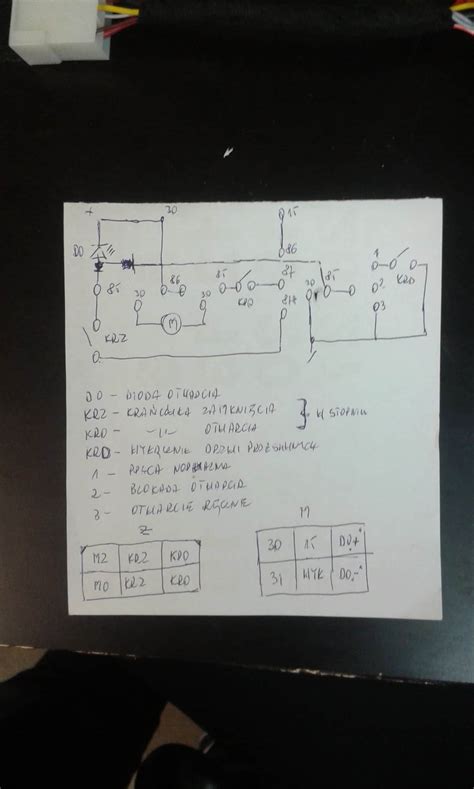 + 30 15
DO 86
85 86 85 87 85 1
30 30 KRO 30 KRD
M 87A 2
KRZ 3
DO - DIODA OTWARCIA
KRZ - KRAŃCÓWKA ZAMKNIĘCIA } W STOPNIU
KRO - -"- OTWARCIA
KRD - WYŁĄCZENIE DRZWI PRZESUWNYCH
1 - PRACA NORMALNA
2 - BLOKADA OTWARCIA
3 - OTWARCIE RĘCZNE
Z M
MZ KRZ KRO
MO KRZ KRO
30 15 DO+
31 WYK DO-